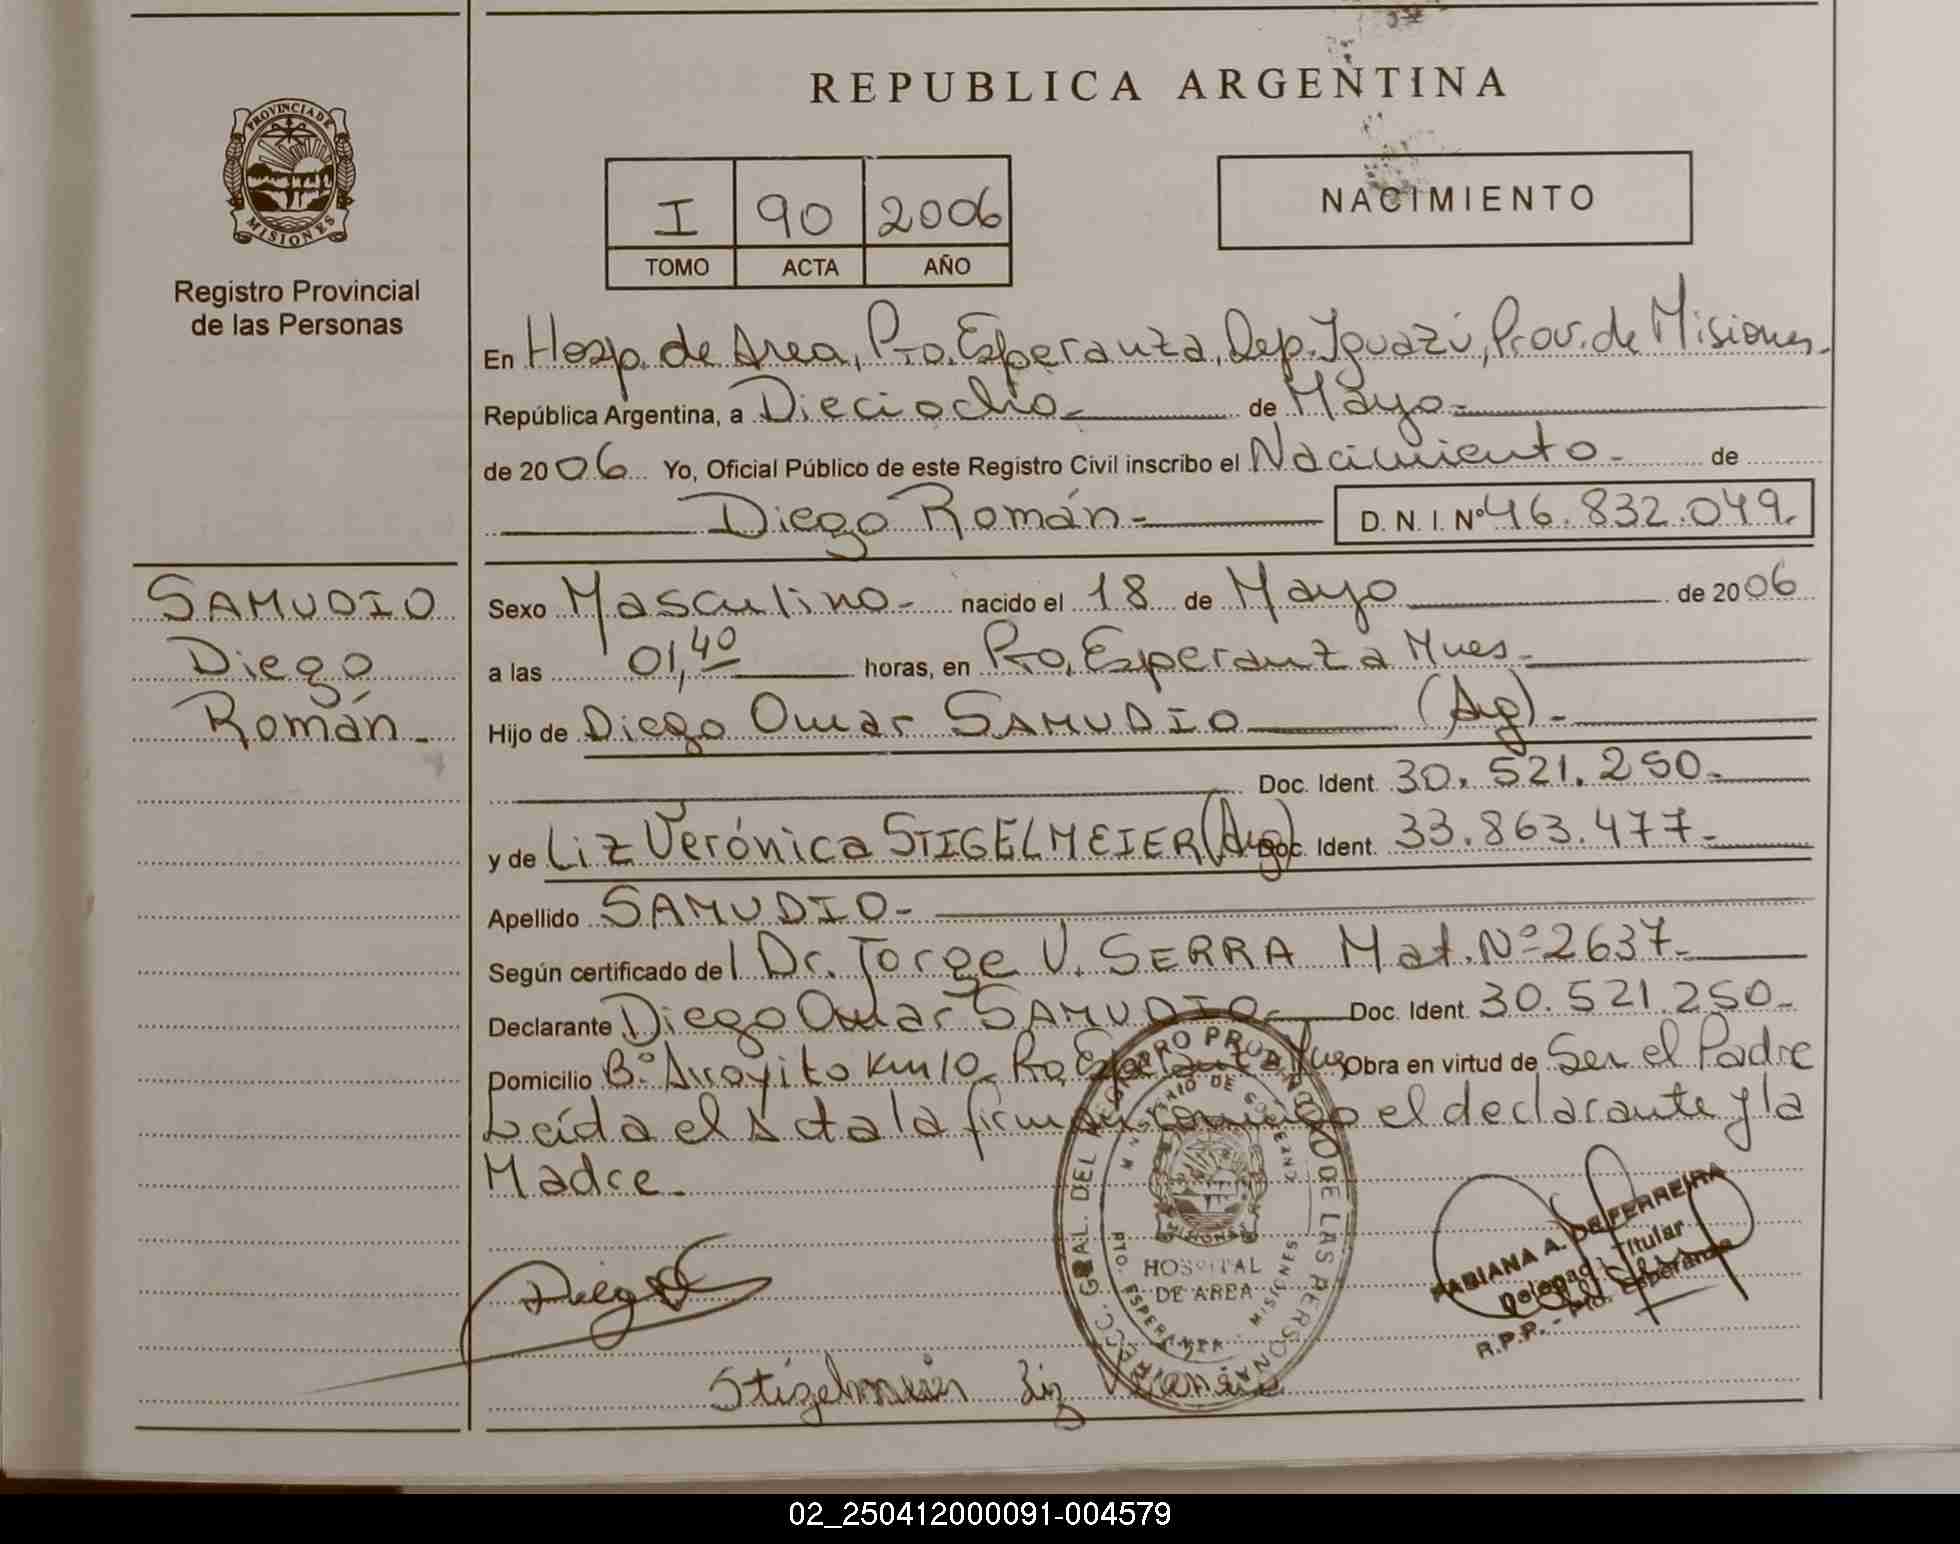 REPUBLICA ARGENTINA
PROVINCIA DE
MISIONES
Registro Provincial
de las Personas
I 90 2006
TOMO ACTA AÑO
NACIMIENTO
En Hosp. de Area, Pto. Esperanza, Dep. Iguazú, Prov. de Misiones.
República Argentina, a Dieciocho de Mayo
de 2006 Yo, Oficial Público de este Registro Civil inscribo el Nacimiento de
Diego Román D. N. I. Nº 46.832.049.
SAMUDIO
Diego
Román
Sexo Masculino nacido el 18 de Mayo de 2006
a las 01,40 horas, en Pto. Esperanza Mnes
Hijo de Diego Omar SAMUDIO (Arg)
Doc. Ident. 30.521.250
y de Liz Verónica STIGELMEIER (Arg) Doc. Ident. 33.863.477
Apellido SAMUDIO
Según certificado del Dr. Jorge V. SERRA Mat. Nº 2637
Declarante Diego Omar SAMUDIO Doc. Ident. 30.521.250
Domicilio Bº Arroyito km 10 Pto. Esperanza Mnes Obra en virtud de Ser el Padre
Leída el Acta la firman conmigo el declarante y la
Madre
GRAL. DEL REGISTRO PROVINCIAL DE LAS PERSONAS
MINISTERIO DE GOBIERNO
MISIONES
HOSPITAL
DE AREA
PTO. ESPERANZA - MISIONES
FABIANA A. DE FERREIRA
Delegada Titular
R.P.P. - Pto. Esperanza
Diego
Stigelmeier Liz
02_250412000091-004579